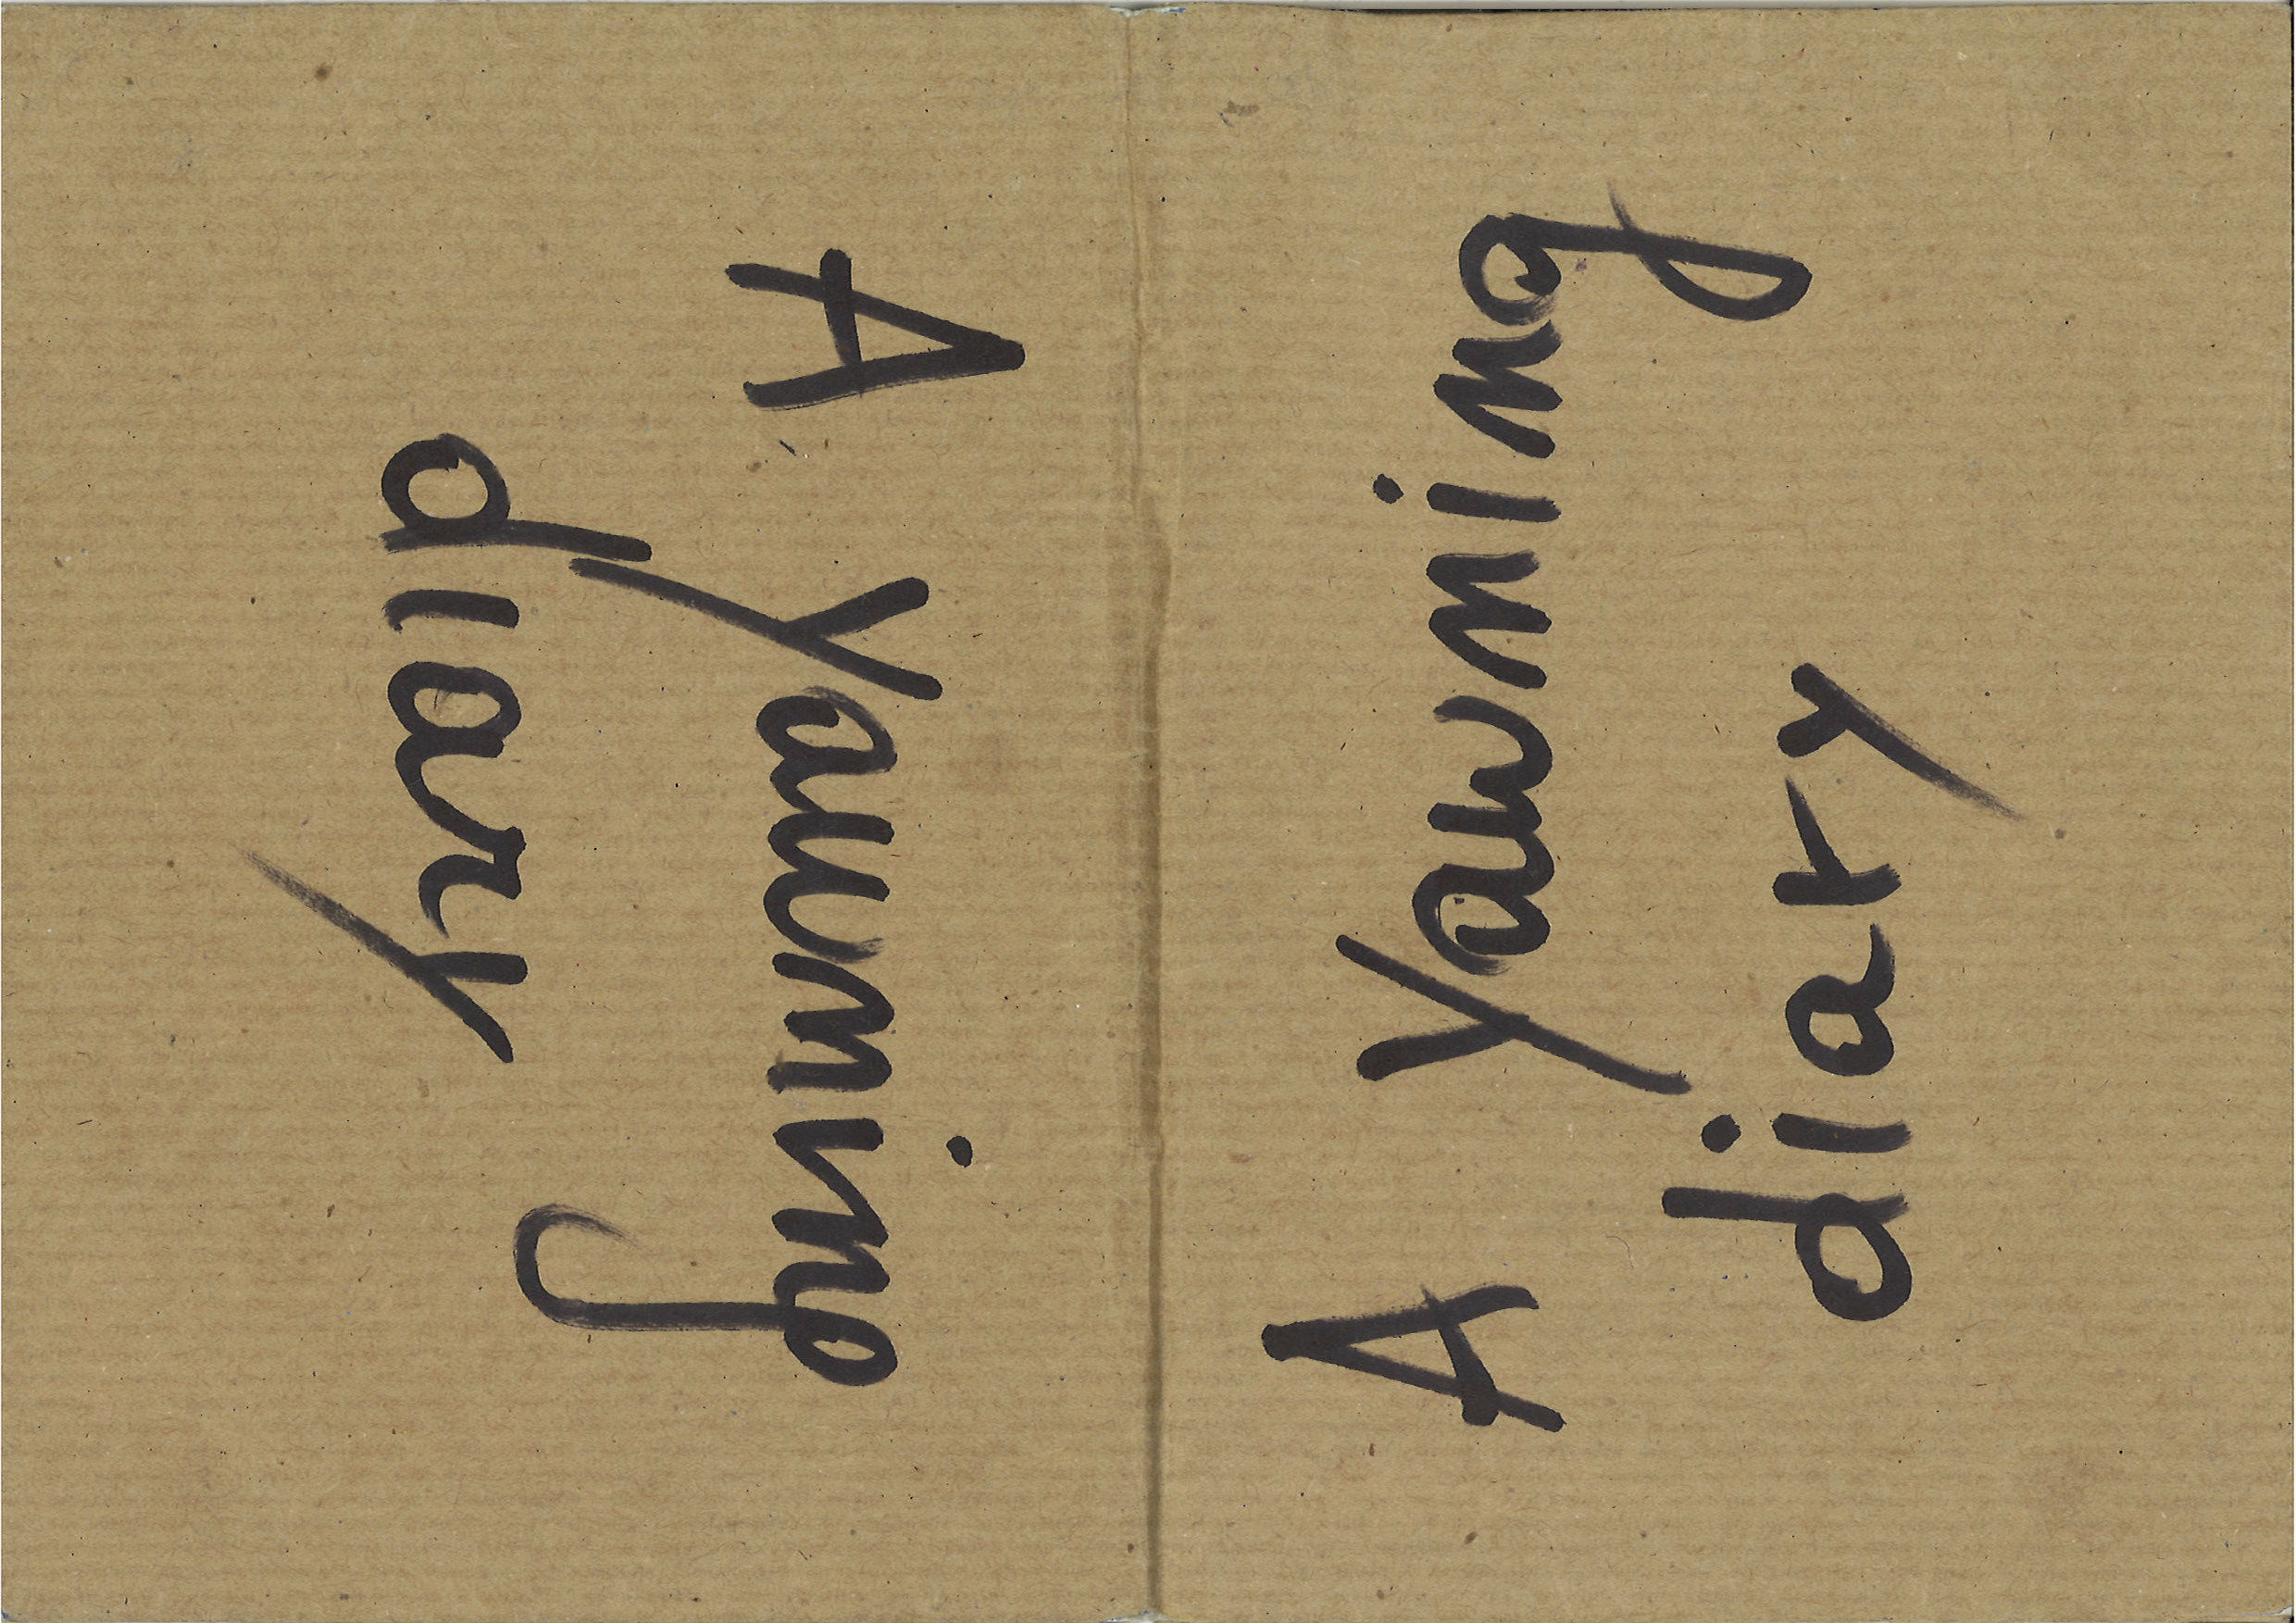 A Yawning
diary
A Yawning
diary